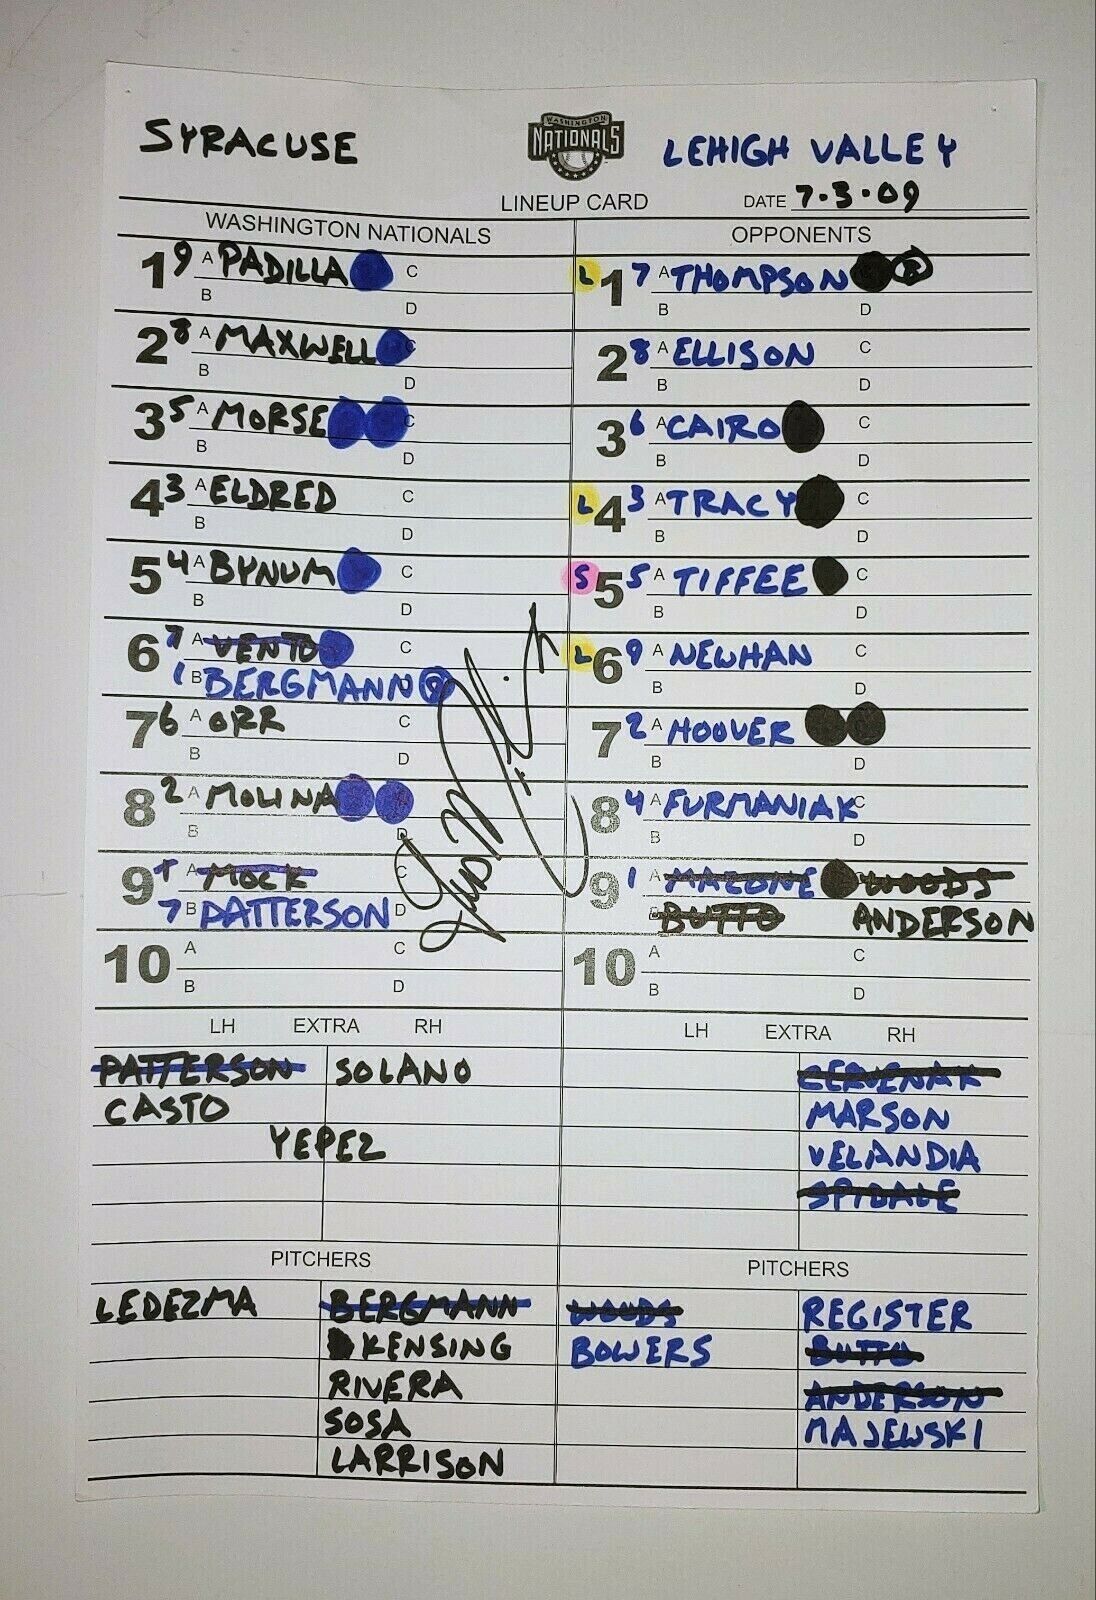 SYRACUSE
WASHINGTON NATIONALS
LEHIGH VALLEY
LINEUP CARD
DATE 7.3.09
WASHINGTON NATIONALS
1 9 A PADILLA C
B D
2 8 A MAXWELL C
B D
3 5 A MORSE C
B D
4 3 A ELDRED C
B D
5 4 A BYNUM C
B D
6 7 A VENTO C
1 B BERGMANN D
7 6 A ORR C
B D
8 2 A MOLINA C
B D
9 1 A MOCK C
7 B PATTERSON D
10 A C
B D
LH EXTRA RH
PATTERSON SOLANO
CASTO
YEPEZ
PITCHERS
LEDEZMA BERGMANN
KENSING
RIVERA
SOSA
LARRISON
OPPONENTS
L 1 7 A THOMPSON R
B D
2 8 A ELLISON C
B D
3 6 A CAIRO C
B D
L 4 3 A TRACY C
B D
S 5 5 A TIFFEE C
B D
L 6 9 A NEWHAN C
B D
7 2 A HOOVER
B D
8 4 A FURMANIAK C
B D
9 1 A MAZONE WOODS
BUTTO ANDERSON
10 A C
B D
LH EXTRA RH
CERVENAK
MARSON
VELANDIA
SPIDALE
PITCHERS
WOODS REGISTER
BOWERS BUTTO
ANDERSON
MAJEWSKI